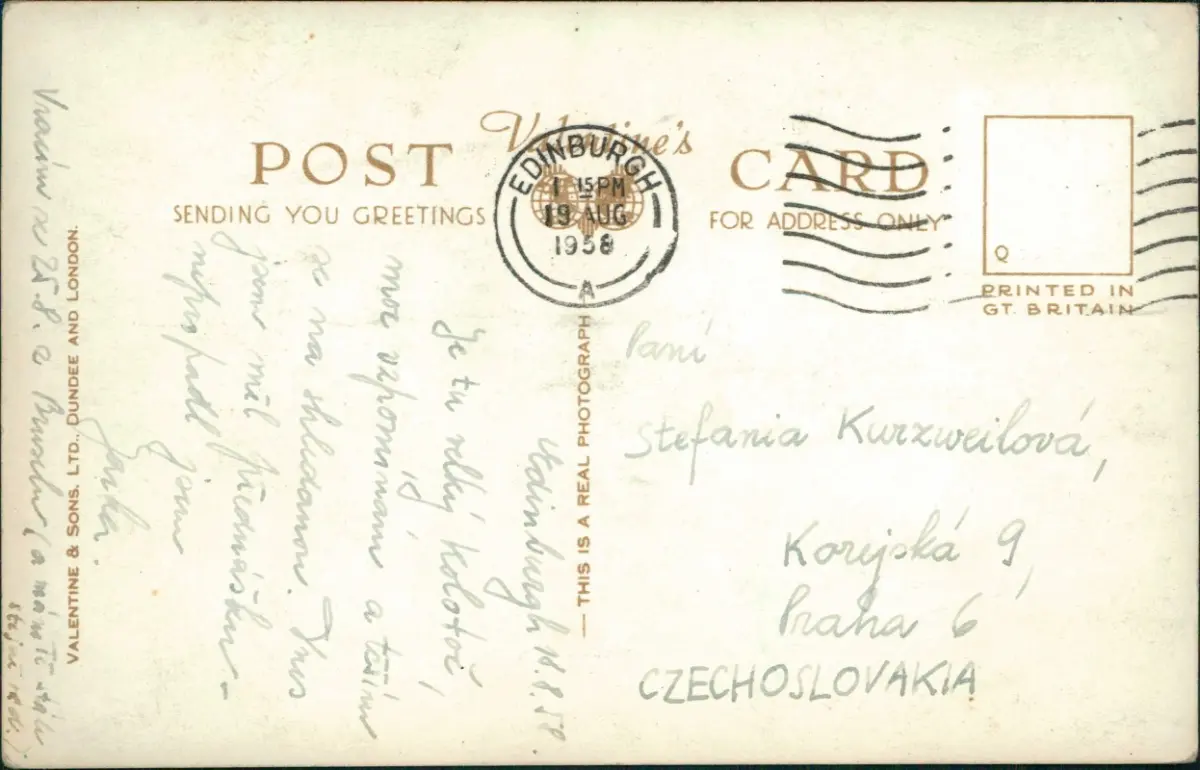 Valentine's
POST CARD
SENDING YOU GREETINGS
FOR ADDRESS ONLY
EDINBURGH
1 15 PM
19 AUG
1958
A
Q
PRINTED IN
GT. BRITAIN
— THIS IS A REAL PHOTOGRAPH —
VALENTINE & SONS. LTD., DUNDEE AND LONDON.
Edinburgh 18.8.58.
Je tu velký kolotoč,
moc vzpomínám a těším
se na shledanou. Dnes
jsem měl přednášku -
nepropadl jsem
Jarka.
Vracím se 25.8. a Bruselu (a mám Tě
stejně rád.)
Paní
Stefania Kurzweilová,
Korejská 9
Praha 6
CZECHOSLOVAKIA